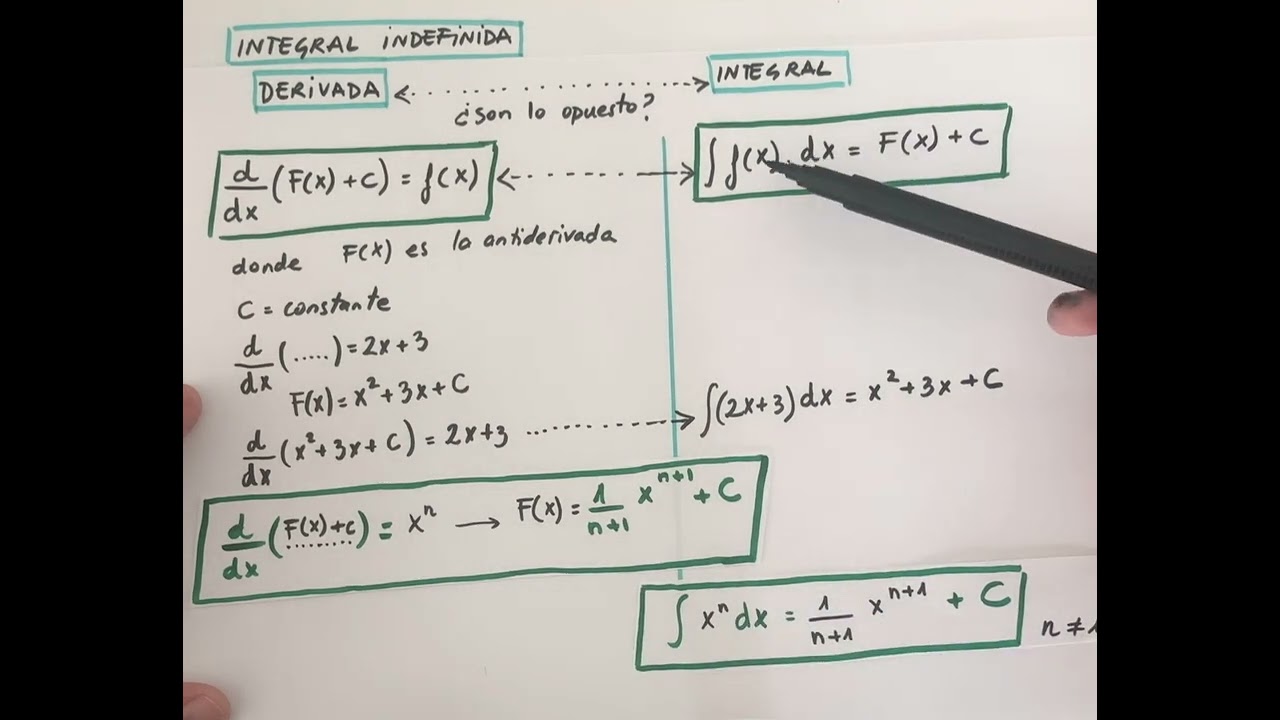 INTEGRAL INDEFINIDA
DERIVADA
INTEGRAL
¿Son lo opuesto?
d/dx (F(x)+C) = f(x)
∫ f(x) dx = F(x) + C
donde F(x) es la antiderivada
C = constante
d/dx (.....) = 2x+3
F(x) = x² + 3x + C
d/dx (x² + 3x + C) = 2x+3
∫(2x+3) dx = x² + 3x + C
d/dx (F(x)+c) = xⁿ → F(x) = 1/n+1 xⁿ⁺¹ + C
∫ xⁿ dx = 1/n+1 xⁿ⁺¹ + C
n ≠